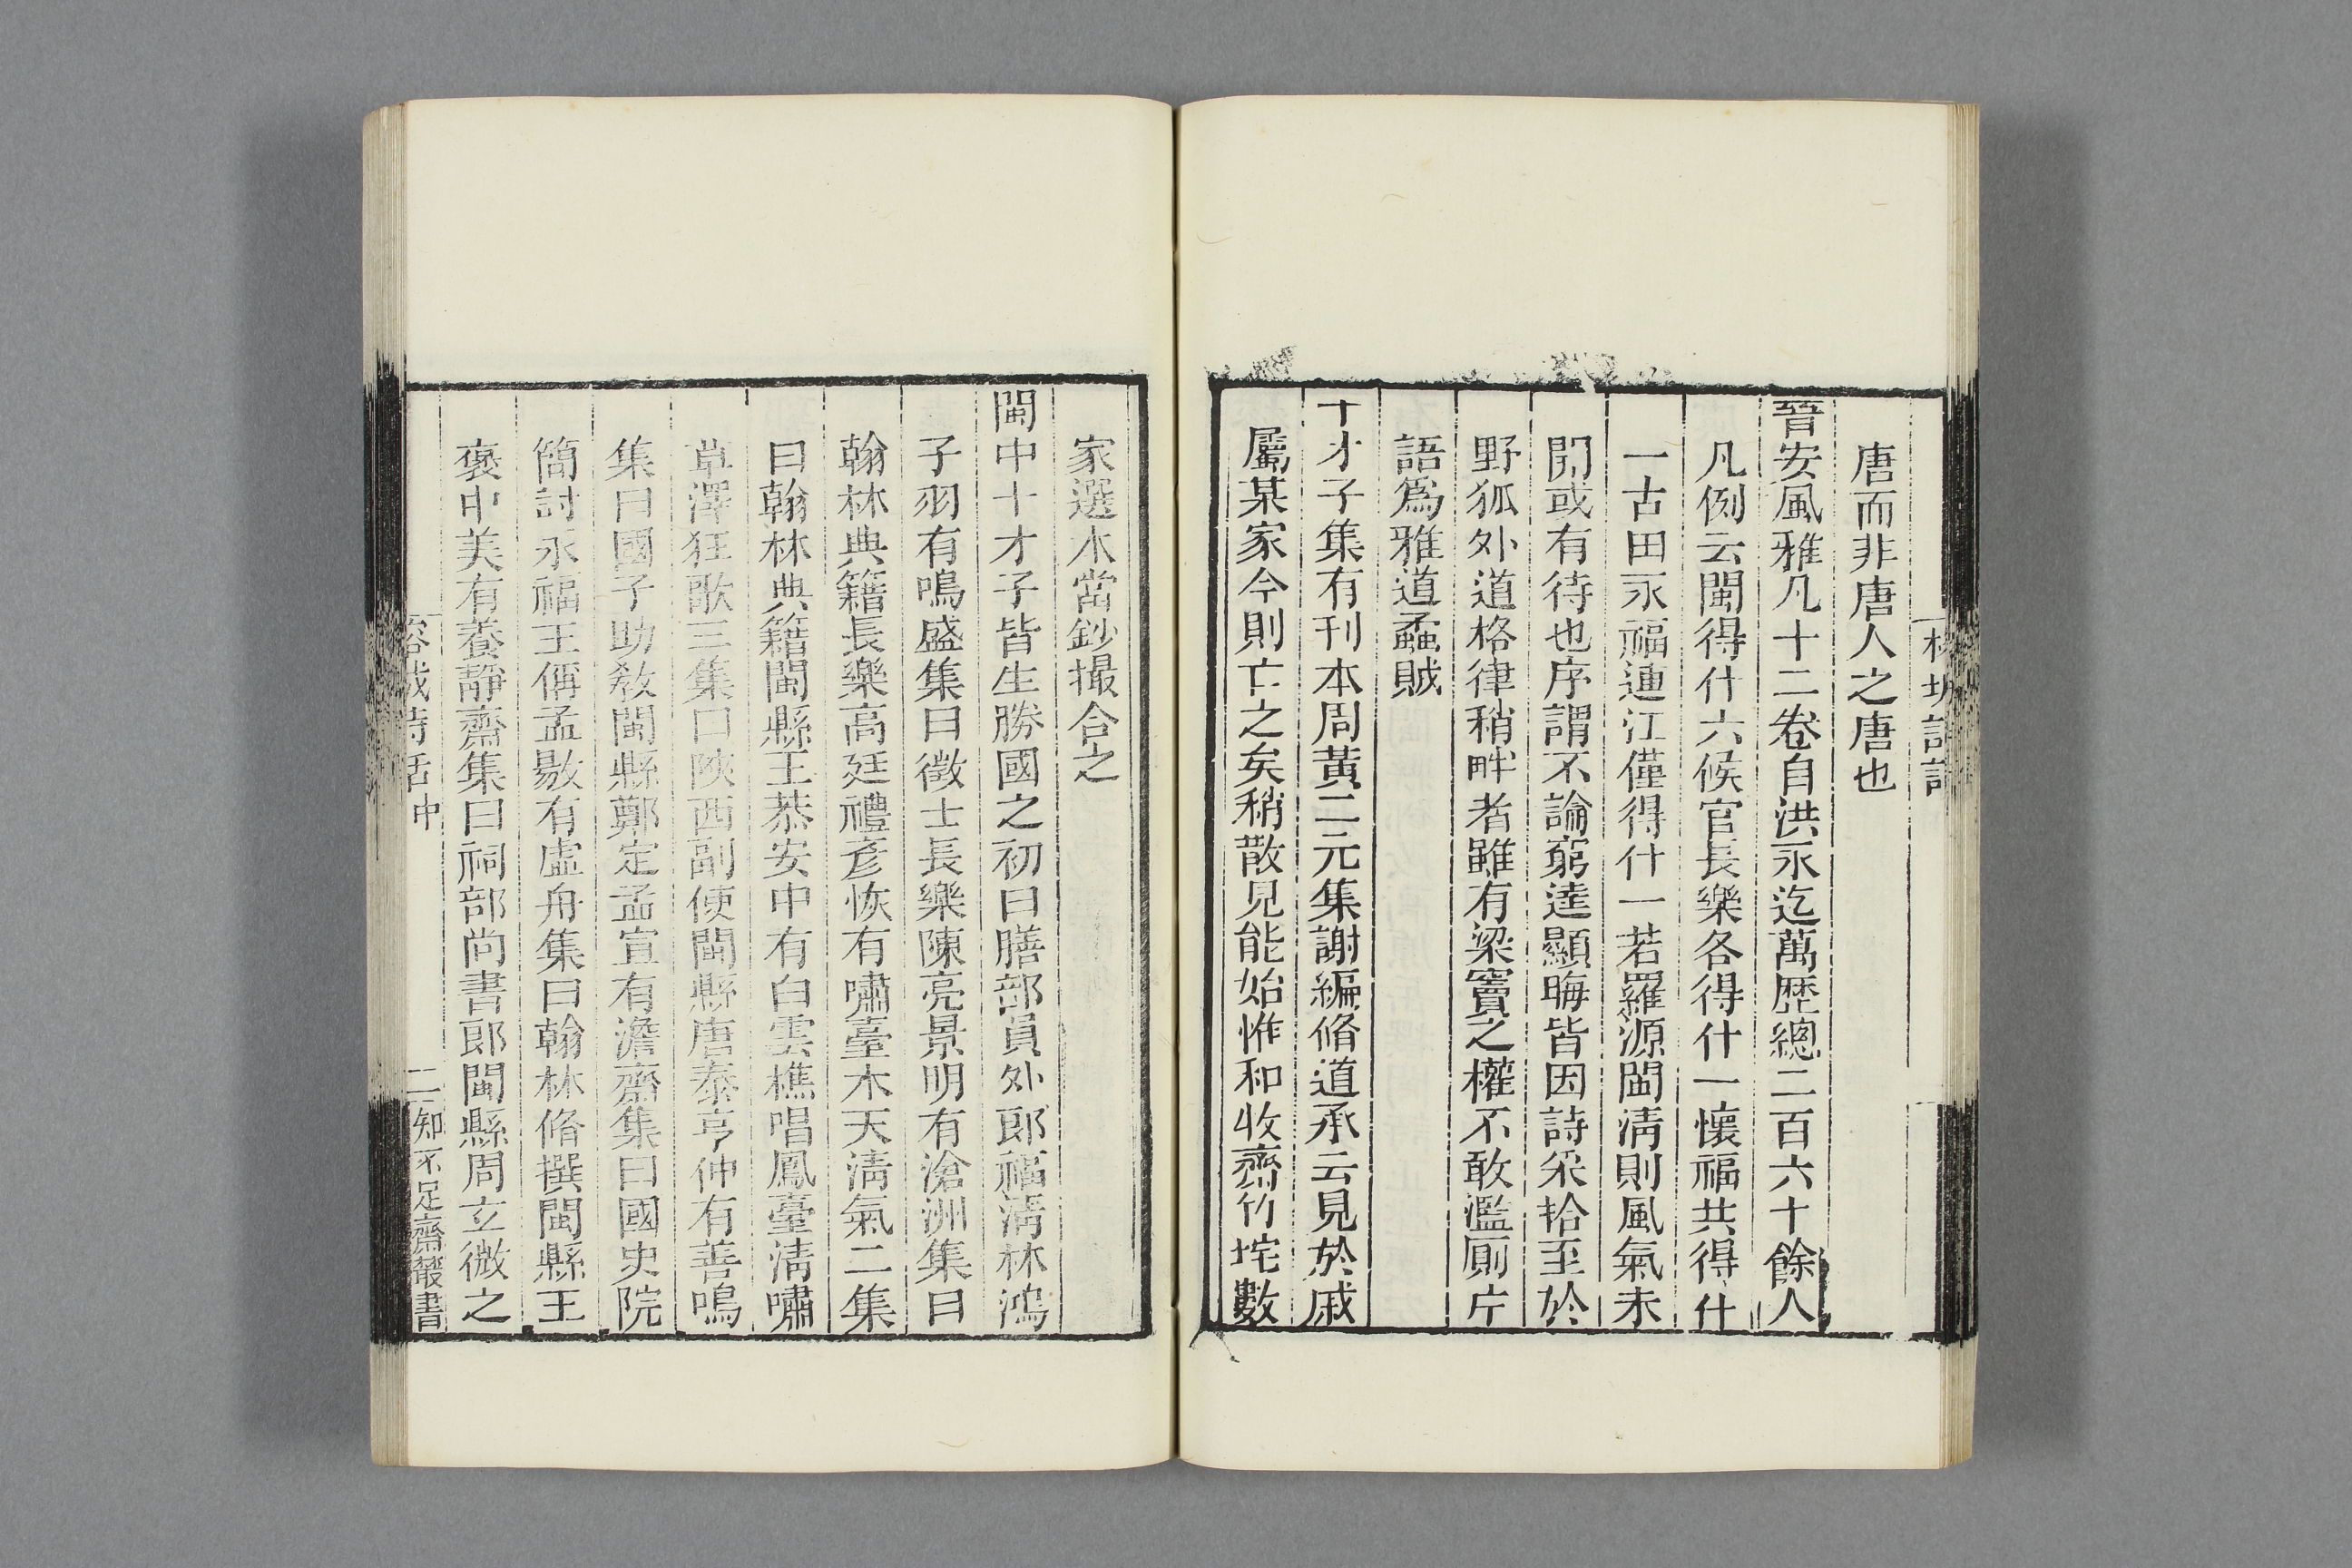 唐而非唐人之唐也
晉安風雅凡十二卷自洪永迄萬歷總二百六十餘人
凡例云閩得什六候官長樂各得什一懷福共得什
一古田永福連江僅得什一若羅源閩清則風氣未
開或有待也序謂不論窮達顯晦皆因詩采拾至於
野狐外道格律稍畔者雖有梁竇之權不敢濫厠片
語爲雅道蟊賊
十才子集有刊本周黃二元集謝編脩道承云見於戚
屬某家今則亡之矣稍散見能始惟和收齋竹垞數
家選本當鈔撮合之
閩中十才子皆生勝國之初曰膳部員外郎福清林鴻
子羽有鳴盛集曰徵士長樂陳亮景明有滄洲集曰
翰林典籍長樂高廷禮彥恢有嘯臺木天清氣二集
曰翰林典籍閩縣王恭安中有白雲樵唱鳳臺清嘯
草澤狂歌三集曰陝西副使閩縣唐泰亨仲有善鳴
集曰國子助敎閩縣鄭定孟宣有澹齋集曰國史院
簡討永福王偁孟敭有虛舟集曰翰林脩撰閩縣王
褒中美有養靜齋集曰祠部尚書郎閩縣周立微之
詩話中
二
知不足齋叢書